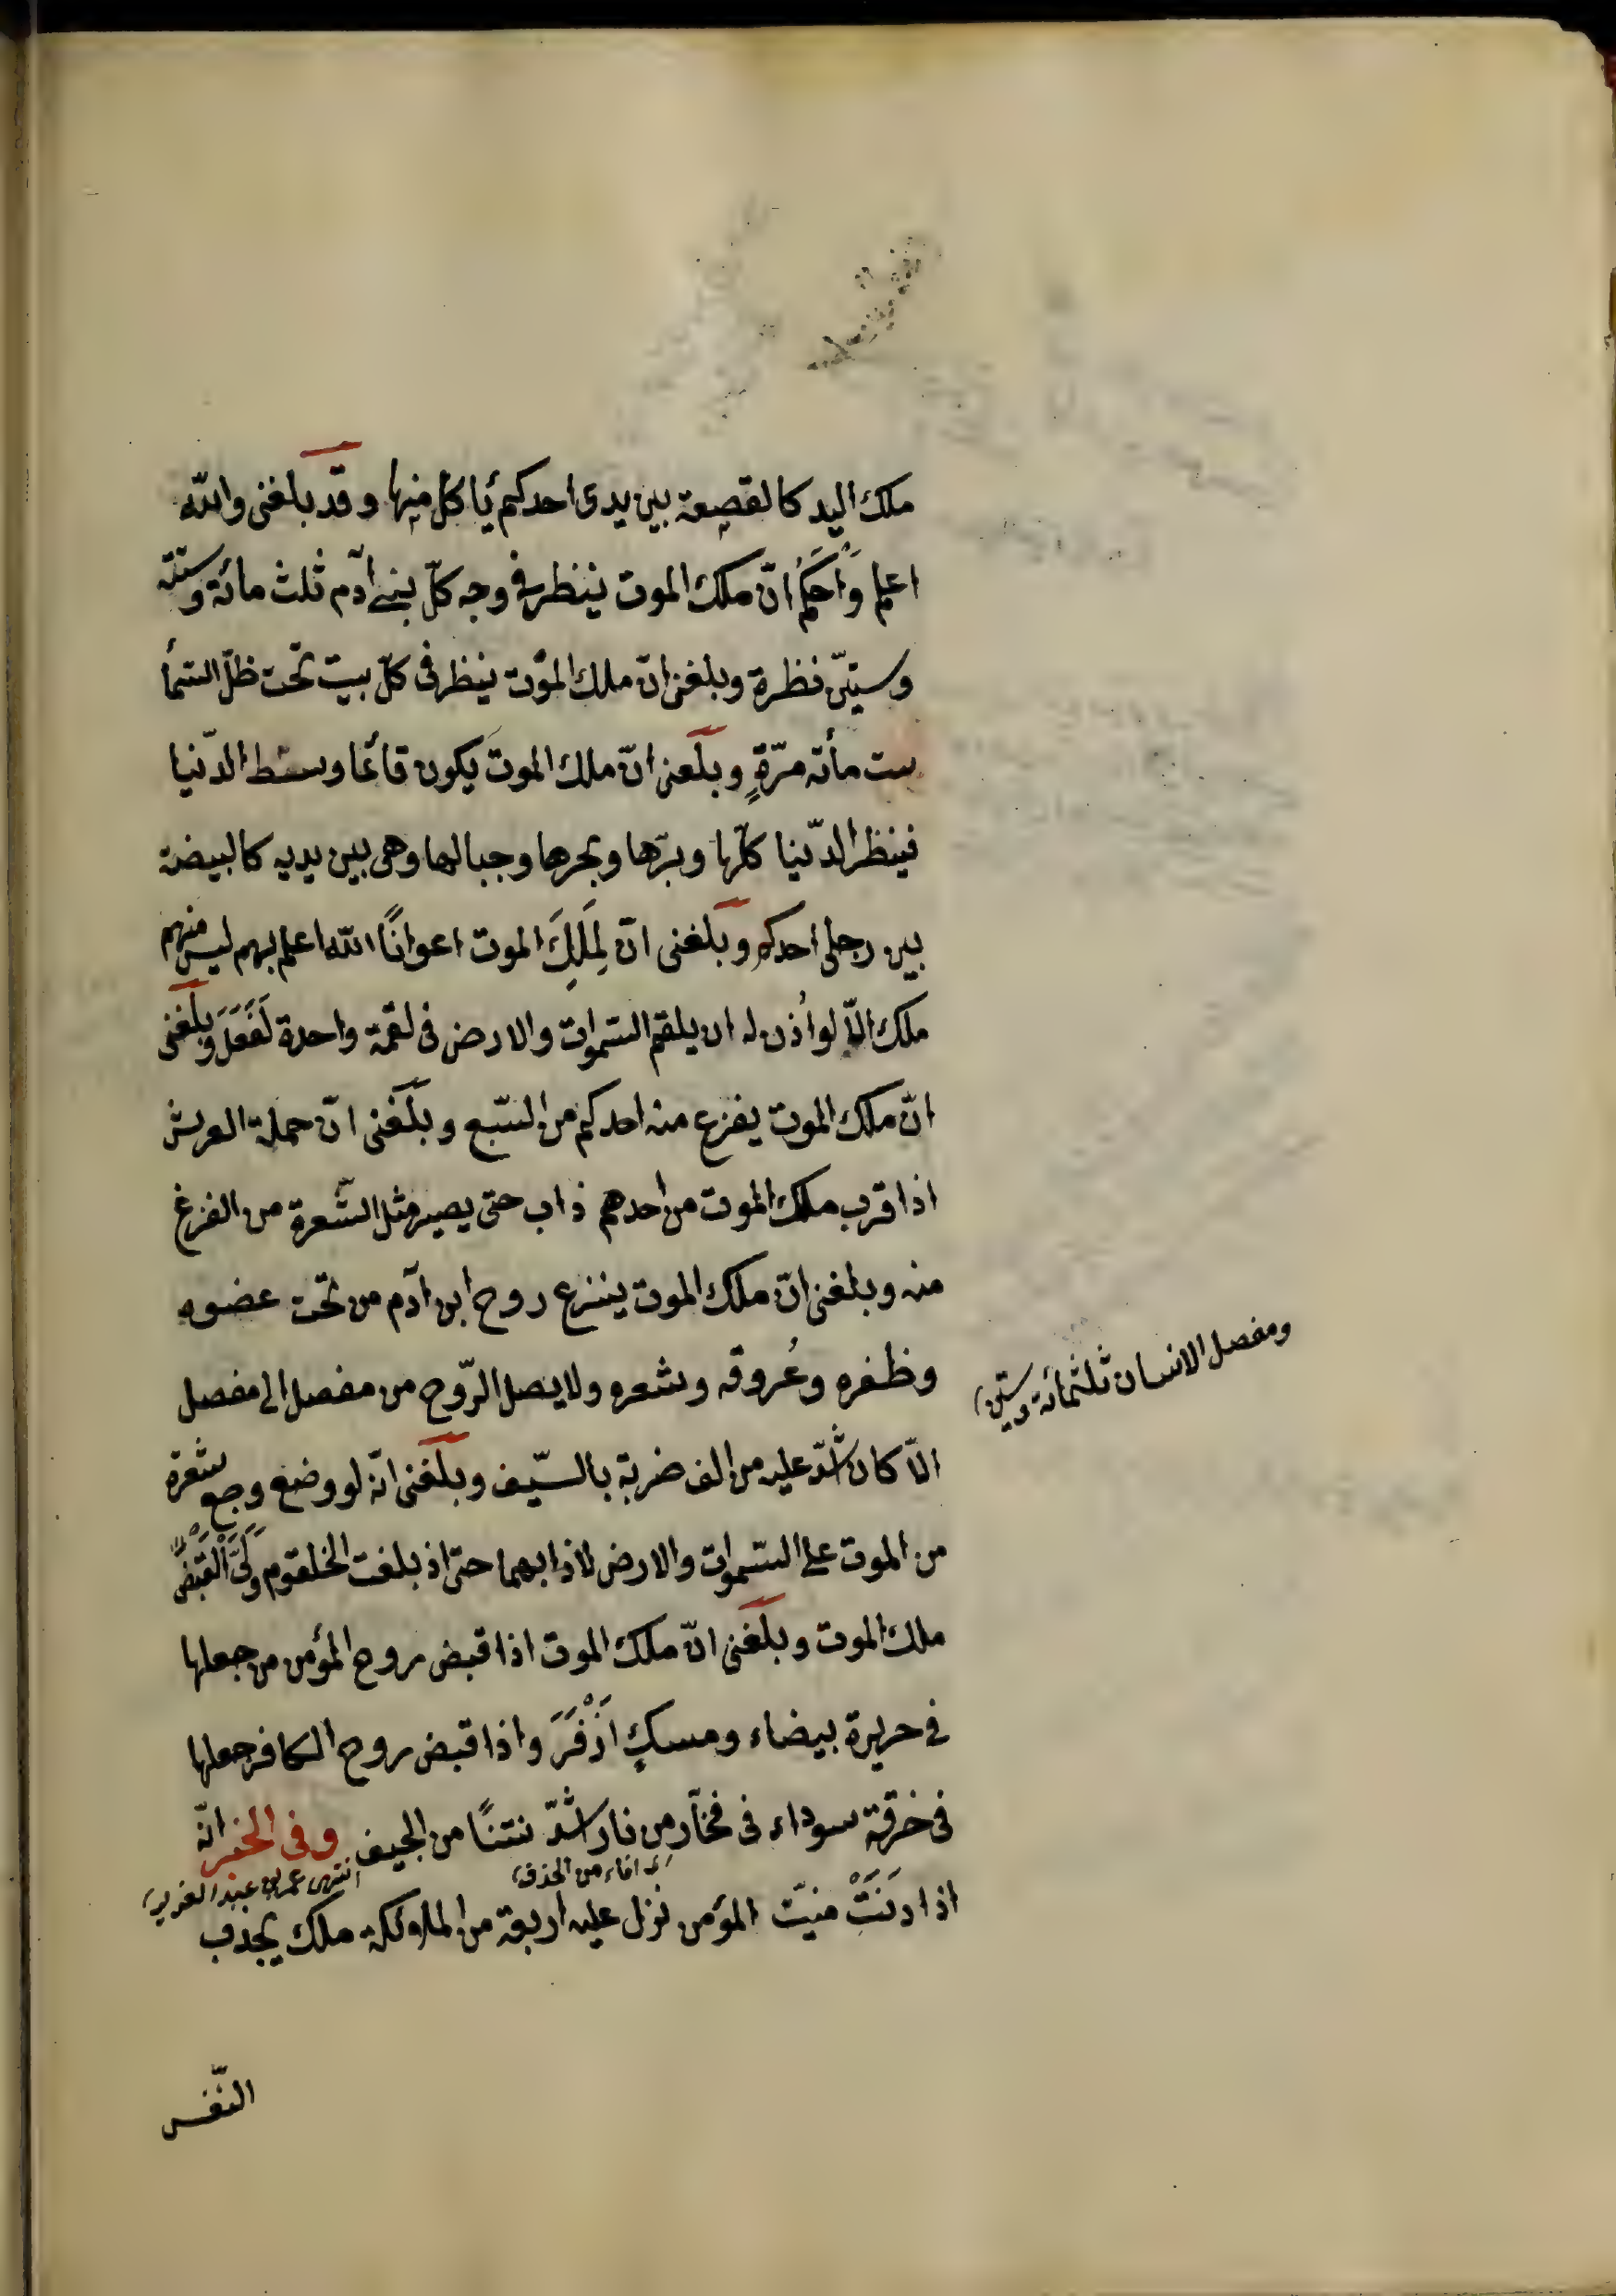 ملك اليد كالقصعة بين يدى احدكم يأكل منها وقد بلغنى والله
اعلم وَاَحكَمُ انّ ملك الموت ينظر فى وجه كلّ بنى آدم ثلث مائة وستة
وستين نظرة وبلغنى انّ ملك الموت ينظر فى كلّ بيت تحت ظلّ السّمأ
ست مأته مرّةٍ وبلغنى انّ ملك الموت يكون قائما وسط الدّنيا
فينظر الدّنيا كلّها وبرّها وبحرها وجبالها وهى بين يديه كالبيضة
بين رجلى احدكم وبلغنى انّ لِمَلَكِ الموت اعوانًا الله اعلم بهم ليس منهم
ملك الّا لو اُذن له ان يلقم السّموات والارض فى لقمة واحدة لَفَعَلَ وبلغنى
انّ ملك الموت يفزع منه احدكم من السّبع وبلغنى انّ حملة العرش
اذا قرب ملك الموت من احدهم ذاب حتى يصير مثل الشّعرة من الفزع
منه وبلغنى انّ ملك الموت ينزع روح ابن آدم من تحت عضوه
وظفره وعُروقه وشعره ولا يصل الرّوح من مفصل الى مفصل
ومفصل الانسان ثلثمائة وستين
الّا كان اشّد عليه من الف ضربة بالسّيف وبلغنى انّه لو وضع وجع شعرة
من الموت على السّموات والارض لاذابهما حتى اذ بلغت الخلقوم وَلَّىَ الْقَبْضَ
ملك الموت وبلغنى انّ ملك الموت اذا قبض روح المؤمن من جعلها
فى حريرة بيضاء ومسكٍ اَذْفَرَ واذا قبض روح الكافر جعلها
فى خرقة سوداء فى فخّار من نار اشدّ نتنًا من الجيف وفى الخبر انّه
اى اناء من الخذف انتهى عمر بن عبد العزيز
اذا دَنَتْ منيّت المؤمن نزل عليه اربعة من الملاوئكة ملك يجذب
النّفس